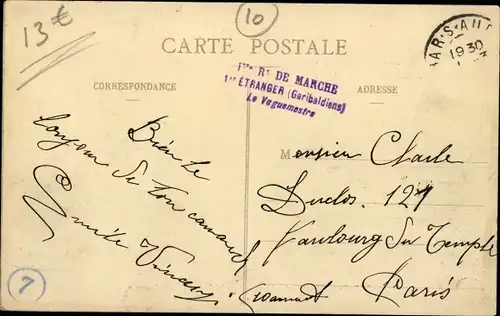 13€
10
CARTE POSTALE
BAR-S-AUBE
1930
CORRESPONDANCE
ADRESSE
Rt DE MARCHE
1er ETRANGER (Garibaldiens)
Le Vaguemestre
Bien le
bonjour de ton camarade
Emile
Monsieur Charle
Duclos. 127
Faubourg du Temple
Paris
7